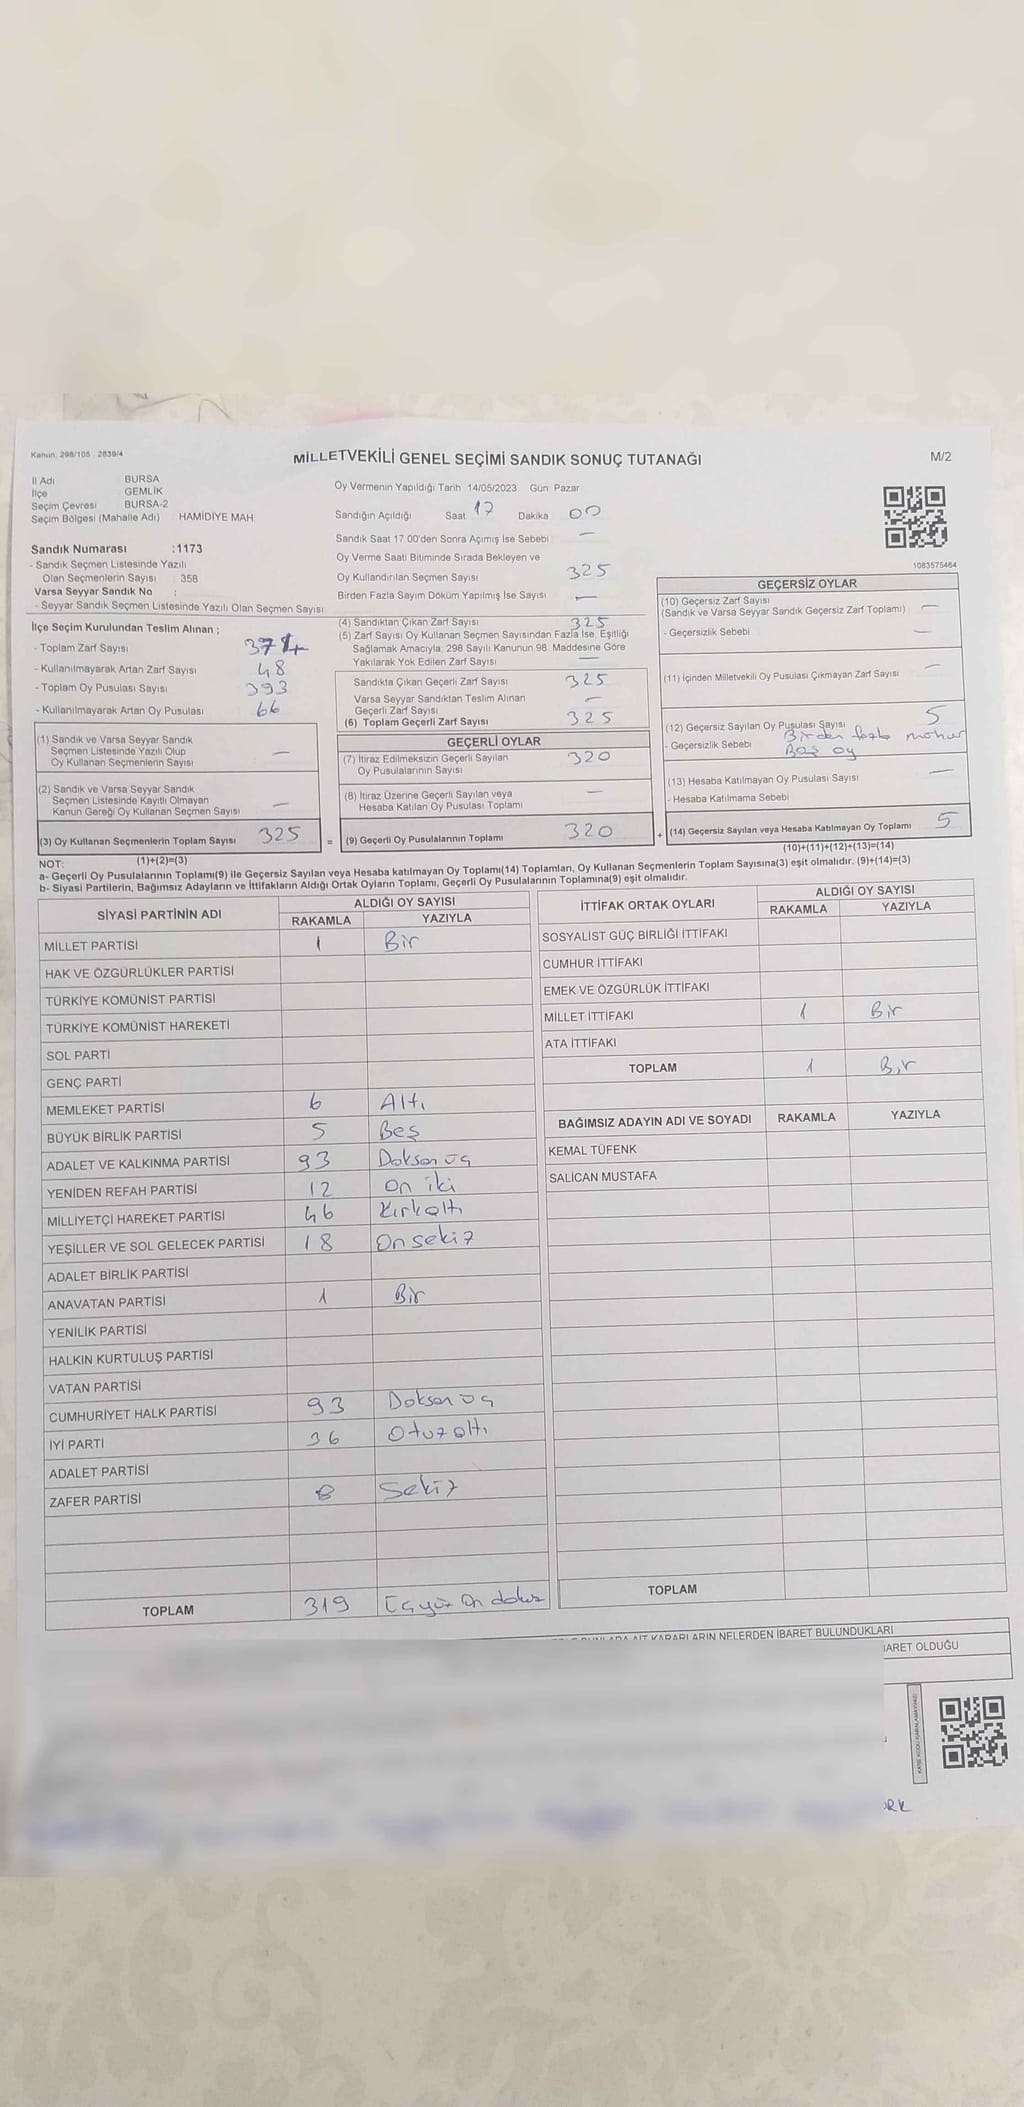 Kanun: 298/105 , 2839/4
MİLLETVEKİLİ GENEL SEÇİMİ SANDIK SONUÇ TUTANAĞI
M/2
İl Adı BURSA
İlçe GEMLİK
Seçim Çevresi BURSA-2
Seçim Bölgesi (Mahalle Adı) HAMİDİYE MAH.
Sandık Numarası :1173
- Sandık Seçmen Listesinde Yazılı
Olan Seçmenlerin Sayısı : 358
Varsa Seyyar Sandık No :
- Seyyar Sandık Seçmen Listesinde Yazılı Olan Seçmen Sayısı
İlçe Seçim Kurulundan Teslim Alınan ;
- Toplam Zarf Sayısı 374
- Kullanılmayarak Artan Zarf Sayısı 48
- Toplam Oy Pusulası Sayısı 393
- Kullanılmayarak Artan Oy Pusulası 66
(1) Sandık ve Varsa Seyyar Sandık
Seçmen Listesinde Yazılı Olup
Oy Kullanan Seçmenlerin Sayısı —
(2) Sandık ve Varsa Seyyar Sandık
Seçmen Listesinde Kayıtlı Olmayan
Kanun Gereği Oy Kullanan Seçmen Sayısı —
(3) Oy Kullanan Seçmenlerin Toplam Sayısı 325
(1)+(2)=(3)
Oy Vermenin Yapıldığı Tarih 14/05/2023 Gün Pazar
Sandığın Açıldığı Saat 17 Dakika 00
Sandık Saat 17.00'den Sonra Açımış İse Sebebi —
Oy Verme Saati Bitiminde Sırada Bekleyen ve
Oy Kullandırılan Seçmen Sayısı 325
Birden Fazla Sayım Döküm Yapılmış İse Sayısı —
(4) Sandıktan Çıkan Zarf Sayısı 325
(5) Zarf Sayısı Oy Kullanan Seçmen Sayısından Fazla İse, Eşitliği
Sağlamak Amacıyla, 298 Sayılı Kanunun 98. Maddesine Göre
Yakılarak Yok Edilen Zarf Sayısı —
Sandıkta Çıkan Geçerli Zarf Sayısı 325
Varsa Seyyar Sandıktan Teslim Alınan
Geçerli Zarf Sayısı —
(6) Toplam Geçerli Zarf Sayısı 325
GEÇERLİ OYLAR
(7) İtiraz Edilmeksizin Geçerli Sayılan
Oy Pusulalarının Sayısı 320
(8) İtiraz Üzerine Geçerli Sayılan veya
Hesaba Katılan Oy Pusulası Toplamı —
= (9) Geçerli Oy Pusulalarının Toplamı 320
1083575464
GEÇERSİZ OYLAR
(10) Geçersiz Zarf Sayısı
(Sandık ve Varsa Seyyar Sandık Geçersiz Zarf Toplamı) —
- Geçersizlik Sebebi —
(11) İçinden Milletvekili Oy Pusulası Çıkmayan Zarf Sayısı —
(12) Geçersiz Sayılan Oy Pusulası Sayısı 5
- Geçersizlik Sebebi Birden fazla mühür
Boş oy
(13) Hesaba Katılmayan Oy Pusulası Sayısı —
- Hesaba Katılmama Sebebi
+ (14) Geçersiz Sayılan veya Hesaba Katılmayan Oy Toplamı 5
(10)+(11)+(12)+(13)=(14)
NOT:
a- Geçerli Oy Pusulalarının Toplamı(9) ile Geçersiz Sayılan veya Hesaba katılmayan Oy Toplamı(14) Toplamları, Oy Kullanan Seçmenlerin Toplam Sayısına(3) eşit olmalıdır. (9)+(14)=(3)
b- Siyasi Partilerin, Bağımsız Adayların ve İttifakların Aldığı Ortak Oyların Toplamı, Geçerli Oy Pusulalarının Toplamına(9) eşit olmalıdır.
SİYASİ PARTİNİN ADI ALDIĞI OY SAYISI
RAKAMLA YAZIYLA
MİLLET PARTİSİ 1 Bir
HAK VE ÖZGÜRLÜKLER PARTİSİ
TÜRKİYE KOMÜNİST PARTİSİ
TÜRKİYE KOMÜNİST HAREKETİ
SOL PARTİ
GENÇ PARTİ
MEMLEKET PARTİSİ 6 Altı
BÜYÜK BİRLİK PARTİSİ 5 Beş
ADALET VE KALKINMA PARTİSİ 93 Doksan üç
YENİDEN REFAH PARTİSİ 12 on iki
MİLLİYETÇİ HAREKET PARTİSİ 46 Kırkaltı
YEŞİLLER VE SOL GELECEK PARTİSİ 18 Onsekiz
ADALET BİRLİK PARTİSİ
ANAVATAN PARTİSİ 1 Bir
YENİLİK PARTİSİ
HALKIN KURTULUŞ PARTİSİ
VATAN PARTİSİ
CUMHURİYET HALK PARTİSİ 93 Doksan üç
İYİ PARTİ 36 Otuzaltı
ADALET PARTİSİ
ZAFER PARTİSİ 8 Sekiz
TOPLAM 319 Üçyüz On dokuz
İTTİFAK ORTAK OYLARI ALDIĞI OY SAYISI
RAKAMLA YAZIYLA
SOSYALİST GÜÇ BİRLİĞİ İTTİFAKI
CUMHUR İTTİFAKI
EMEK VE ÖZGÜRLÜK İTTİFAKI
MİLLET İTTİFAKI 1 Bir
ATA İTTİFAKI
TOPLAM 1 Bir
BAĞIMSIZ ADAYIN ADI VE SOYADI RAKAMLA YAZIYLA
KEMAL TÜFENK
SALİCAN MUSTAFA
TOPLAM
KARARLARIN NELERDEN İBARET BULUNDUKLARI
İBARET OLDUĞU